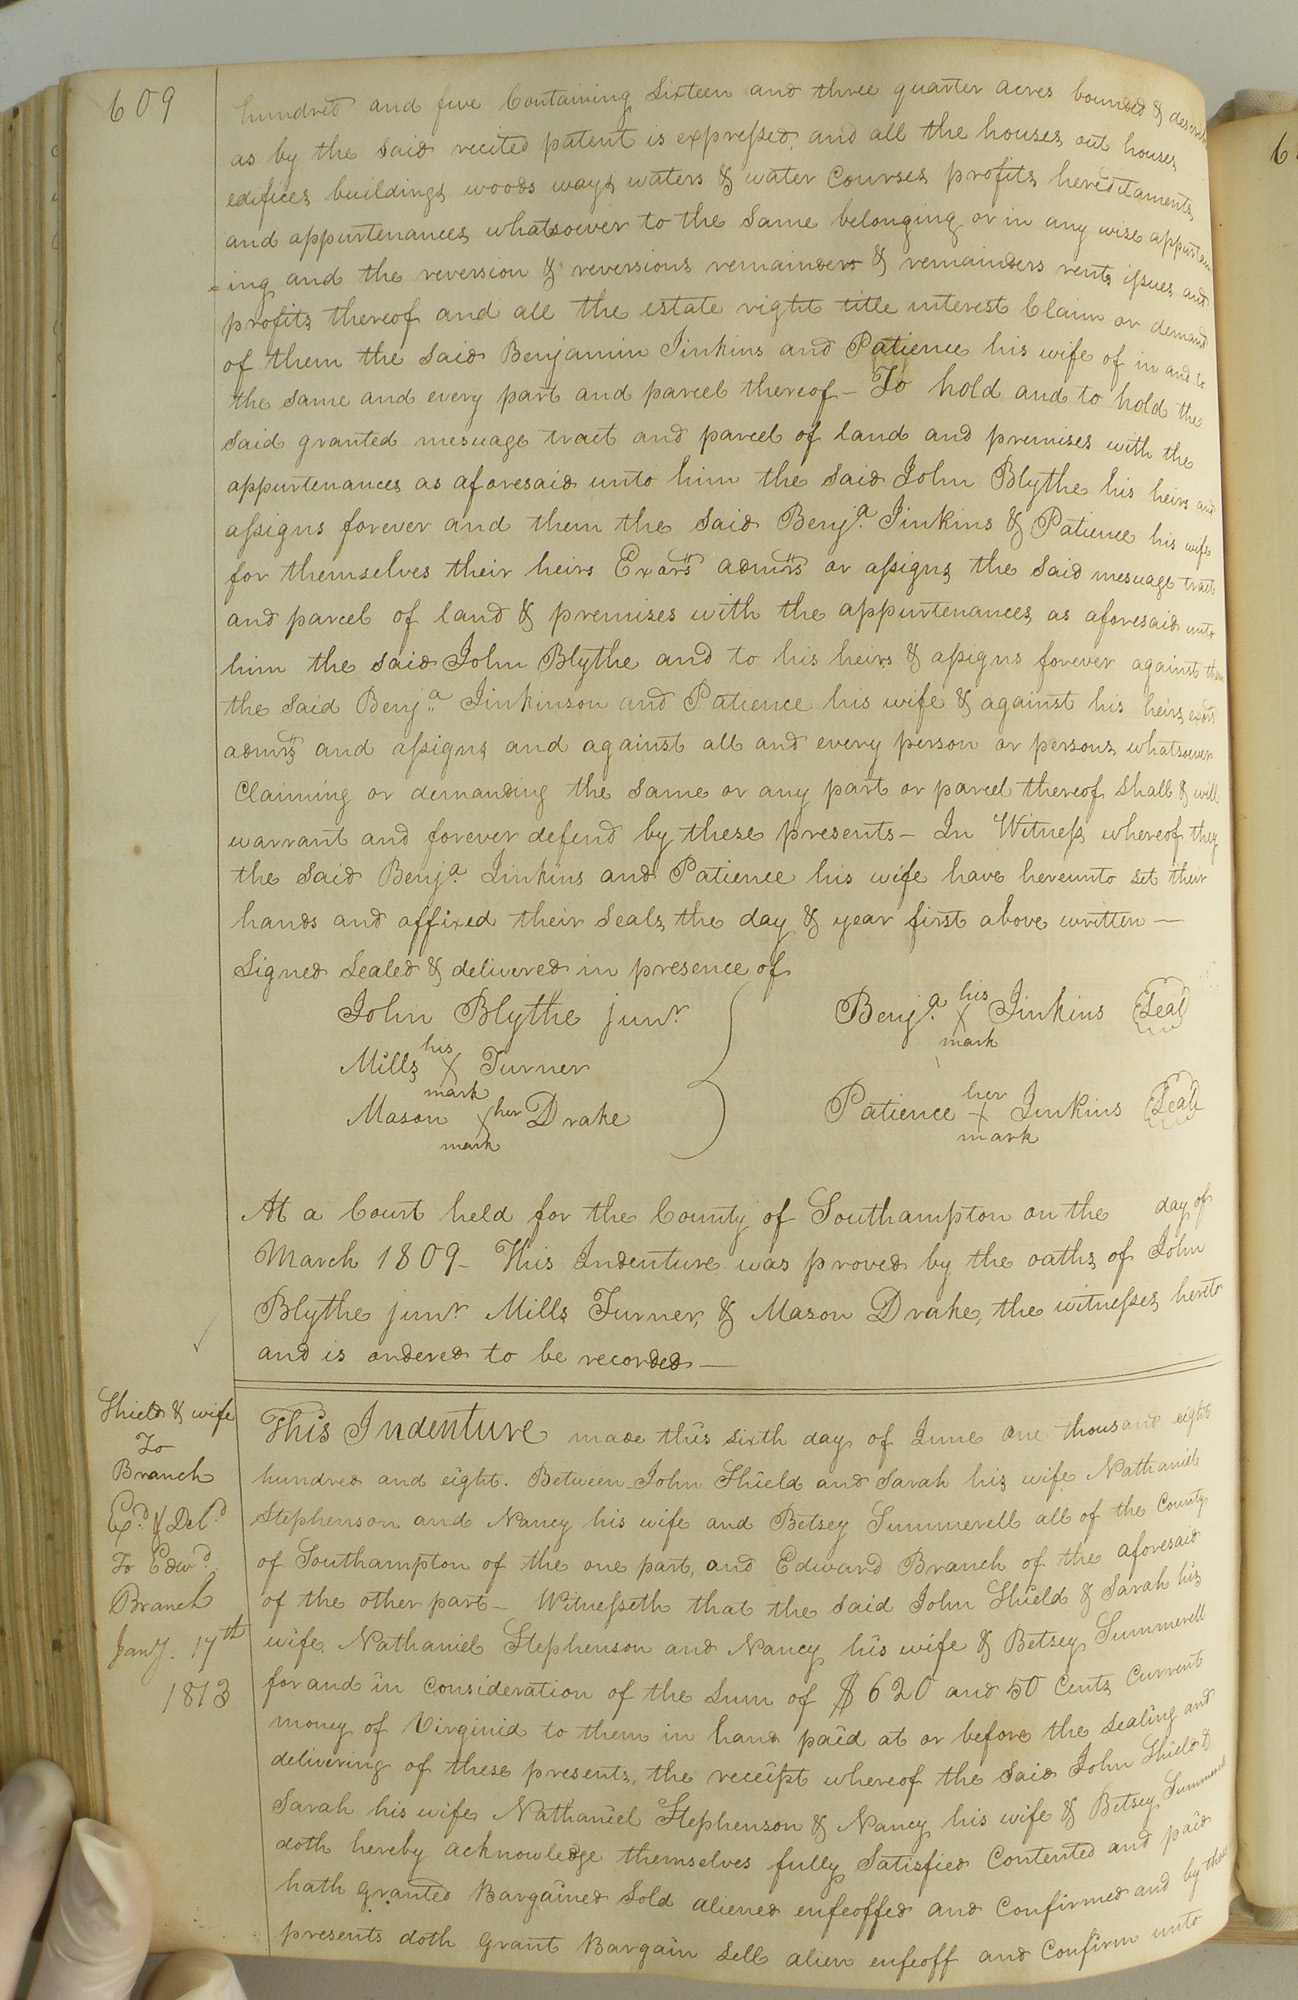 609
hundred and five Containing Sixteen and three quarter acres bounded &
as by the said recited patent is expressed, and all the houses out houses
edifices buildings woods ways waters & water Courses profits hereditaments
and appurtenances whatsoever to the same belonging or in any wise appurtain
=ing and the reversion & reversions remainders & remainders rents issues and
profits thereof and all the estate right title interest Claim or demand
of them the said Benjamin Jinkins and Patience his wife of in and to
the same and every part and parcel thereof - To hold and to hold the
said granted mesuage tract and parcel of land and premises with the
appurtenances as aforesaid unto him the said John Blythe his heirs and
assigns forever and them the said Benja. Jinkins & Patience his wife
for themselves their heirs Exors admrs or assigns the said mesuage tract
and parcel of land & premises with the appurtenances as aforesaid unto
him the said John Blythe and to his heirs & assigns forever against them
the said Benja. Jinkinson and Patience his wife & against his heirs exors
admrs and assigns and against all and every person or persons whatsoever
Claiming or demanding the same or any part or parcel thereof shall & will
warrant and forever defend by these presents - In Witness whereof they
the said Benja. Jinkins and Patience his wife have hereunto set their
hands and affixed their seals the day & year first above written —
Signed Sealed & delivered in presence of
John Blythe junr.
Mills his X mark Turner
Mason her X mark Drake
Benja. his X mark Jinkins Seal
Patience her X mark Jinkins Seal
At a Court held for the County of Southampton on the day of
March 1809 - This Indenture was proved by the oaths of John
Blythe junr. Mills Turner, & Mason Drake, the witnesses hereto
and is ordered to be recorded —
Shield & wife
To
Branch
Exd. & Deld.
To Edwd.
Branch
Jany. 17th
1813
This Indenture made this sixth day of June one thousand eight
hundred and eight. Between John Shield and Sarah his wife Nathaniel
Stephenson and Nancy his wife and Betsey Summerell all of the County
of Southampton of the one part, and Edward Branch of the aforesaid
of the other part - Witnesseth that the said John Shield & Sarah his
wife Nathaniel Stephenson and Nancy his wife & Betsey Summerell
for and in Consideration of the sum of $ 620 and 50 Cents Current
money of Virginia to them in hand paid at or before the sealing and
delivering of these presents, the receipt whereof the said John Shield &
Sarah his wife Nathaniel Stephenson & Nancy his wife & Betsey Summerell
doth hereby acknowledge themselves fully satisfied Contented and paid
hath granted Bargained Sold aliened enfeoffed and Confirmed and by these
presents doth Grant Bargain Sell alien enfeoff and Confirm unto